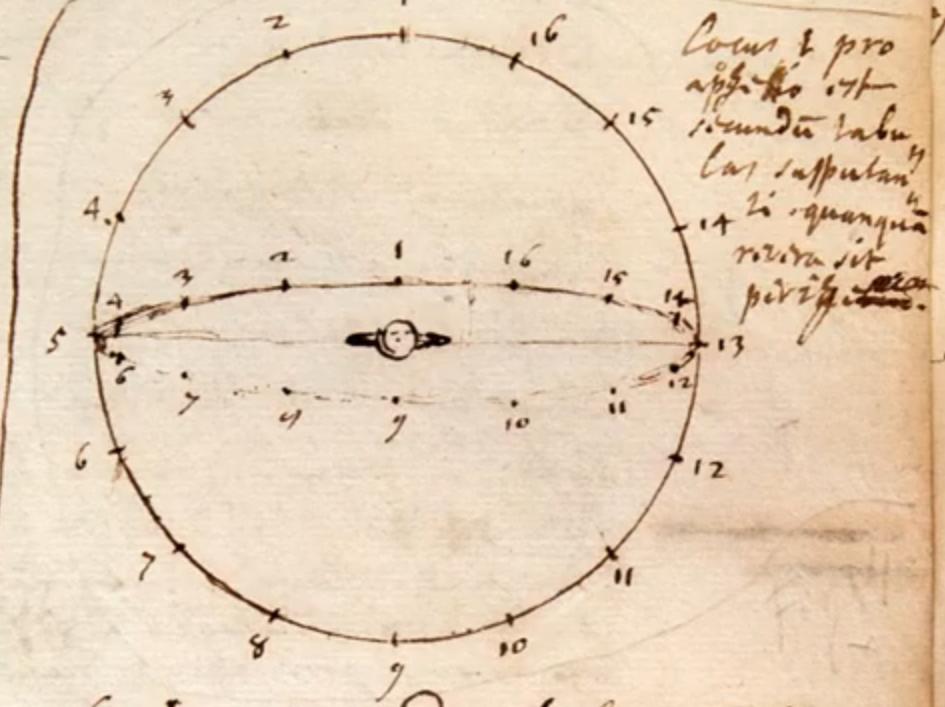 Locus 1 pro
est
secundū tabu„
las supputan„
ti quanquā
revera sit
1
2 16
3 15
4. 14
2 1 16
3 15
4 14
5 13
6 12
7 11
9 10
6 12
7 11
8 10
9